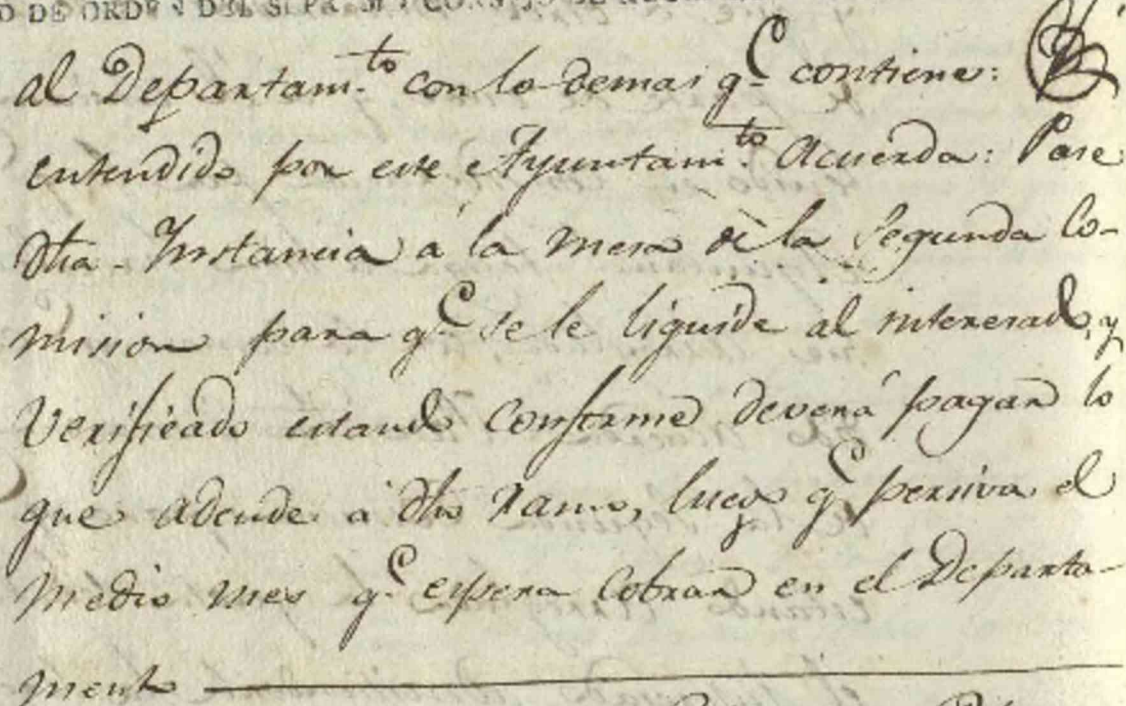 D DE ORDEN DEL SUPREMO CONSEJO DE
al Departam.to con lo demas q.e contiene: Y
entendido por este Ayuntam.to Acuerda: Pase
dha Instancia á la mesa de la Segunda Co-
mision para q.e se le liquide al interesado, y
Verificado estando conforme deverá pagar lo
que adeude á dho ramo, luego q.e persiva el
medio mes q.e espera cobrar en el Departa-
mento